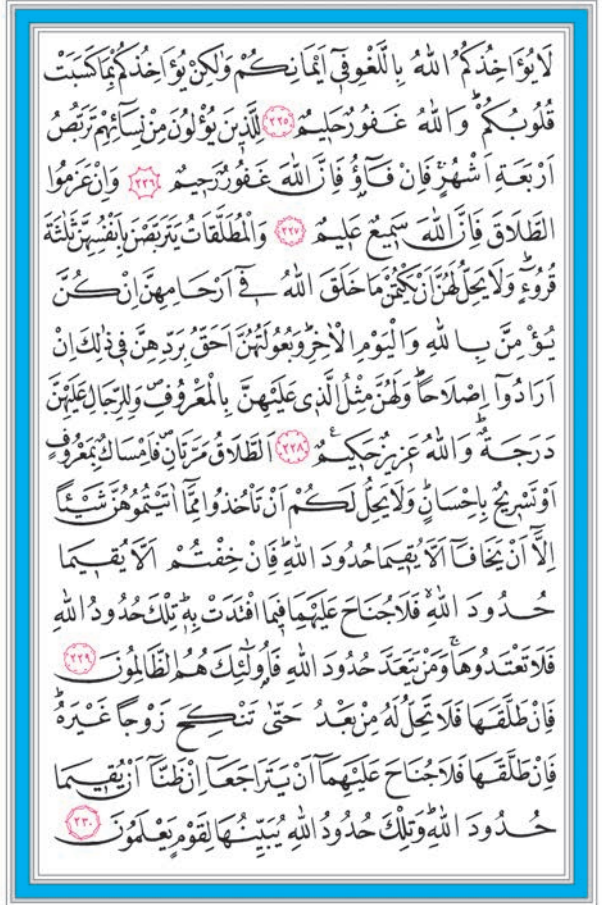 لَا يُؤَاخِذُكُمُ اللّٰهُ بِاللَّغْوِ فٓى اَيْمَانِكُمْ وَلٰكِنْ يُؤَاخِذُكُمْ بِمَا كَسَبَتْ
قُلُوبُكُمْۜ وَاللّٰهُ غَفُورٌ حَلٖيمٌ ﴿٢٢٥﴾ لِلَّذٖينَ يُؤْلُونَ مِنْ نِسَٓائِهِمْ تَرَبُّصُ
اَرْبَعَةِ اَشْهُرٍۚ فَاِنْ فَٓاؤُ فَاِنَّ اللّٰهَ غَفُورٌ رَحٖيمٌ ﴿٢٢٦﴾ وَاِنْ عَزَمُوا
الطَّلَاقَ فَاِنَّ اللّٰهَ سَمٖيعٌ عَلٖيمٌ ﴿٢٢٧﴾ وَالْمُطَلَّقَاتُ يَتَرَبَّصْنَ بِاَنْفُسِهِنَّ ثَلٰثَةَ
قُرُٓوءٍۜ وَلَا يَحِلُّ لَهُنَّ اَنْ يَكْتُمْنَ مَا خَلَقَ اللّٰهُ فٖٓى اَرْحَامِهِنَّ اِنْ كُنَّ
يُؤْمِنَّ بِاللّٰهِ وَالْيَوْمِ الْاٰخِرِۜ وَبُعُولَتُهُنَّ اَحَقُّ بِرَدِّهِنَّ فٖى ذٰلِكَ اِنْ
اَرَادُٓوا اِصْلَاحًاۜ وَلَهُنَّ مِثْلُ الَّذٖى عَلَيْهِنَّ بِالْمَعْرُوفِۖ وَلِلرِّجَالِ عَلَيْهِنَّ
دَرَجَةٌۜ وَاللّٰهُ عَزٖيزٌ حَكٖيمٌ ﴿٢٢٨﴾ اَلطَّلَاقُ مَرَّتَانِۖ فَاِمْسَاكٌ بِمَعْرُوفٍ
اَوْ تَسْرٖيحٌ بِاِحْسَانٍۜ وَلَا يَحِلُّ لَكُمْ اَنْ تَأْخُذُوا مِمَّٓا اٰتَيْتُمُوهُنَّ شَيْـًٔا
اِلَّٓا اَنْ يَخَافَٓا اَلَّا يُقٖيمَا حُدُودَ اللّٰهِۜ فَاِنْ خِفْتُمْ اَلَّا يُقٖيمَا
حُدُودَ اللّٰهِۙ فَلَا جُنَاحَ عَلَيْهِمَا فٖيمَا افْتَدَتْ بِهٖۜ تِلْكَ حُدُودُ اللّٰهِ
فَلَا تَعْتَدُوهَاۚ وَمَنْ يَتَعَدَّ حُدُودَ اللّٰهِ فَاُولٰٓئِكَ هُمُ الظَّالِمُونَ ﴿٢٢٩﴾
فَاِنْ طَلَّقَهَا فَلَا تَحِلُّ لَهُ مِنْ بَعْدُ حَتّٰى تَنْكِحَ زَوْجًا غَيْرَهُۜ
فَاِنْ طَلَّقَهَا فَلَا جُنَاحَ عَلَيْهِمَٓا اَنْ يَتَرَاجَعَٓا اِنْ ظَنَّٓا اَنْ يُقٖيمَا
حُدُودَ اللّٰهِۜ وَتِلْكَ حُدُودُ اللّٰهِ يُبَيِّنُهَا لِقَوْمٍ يَعْلَمُونَ ﴿٢٣٠﴾